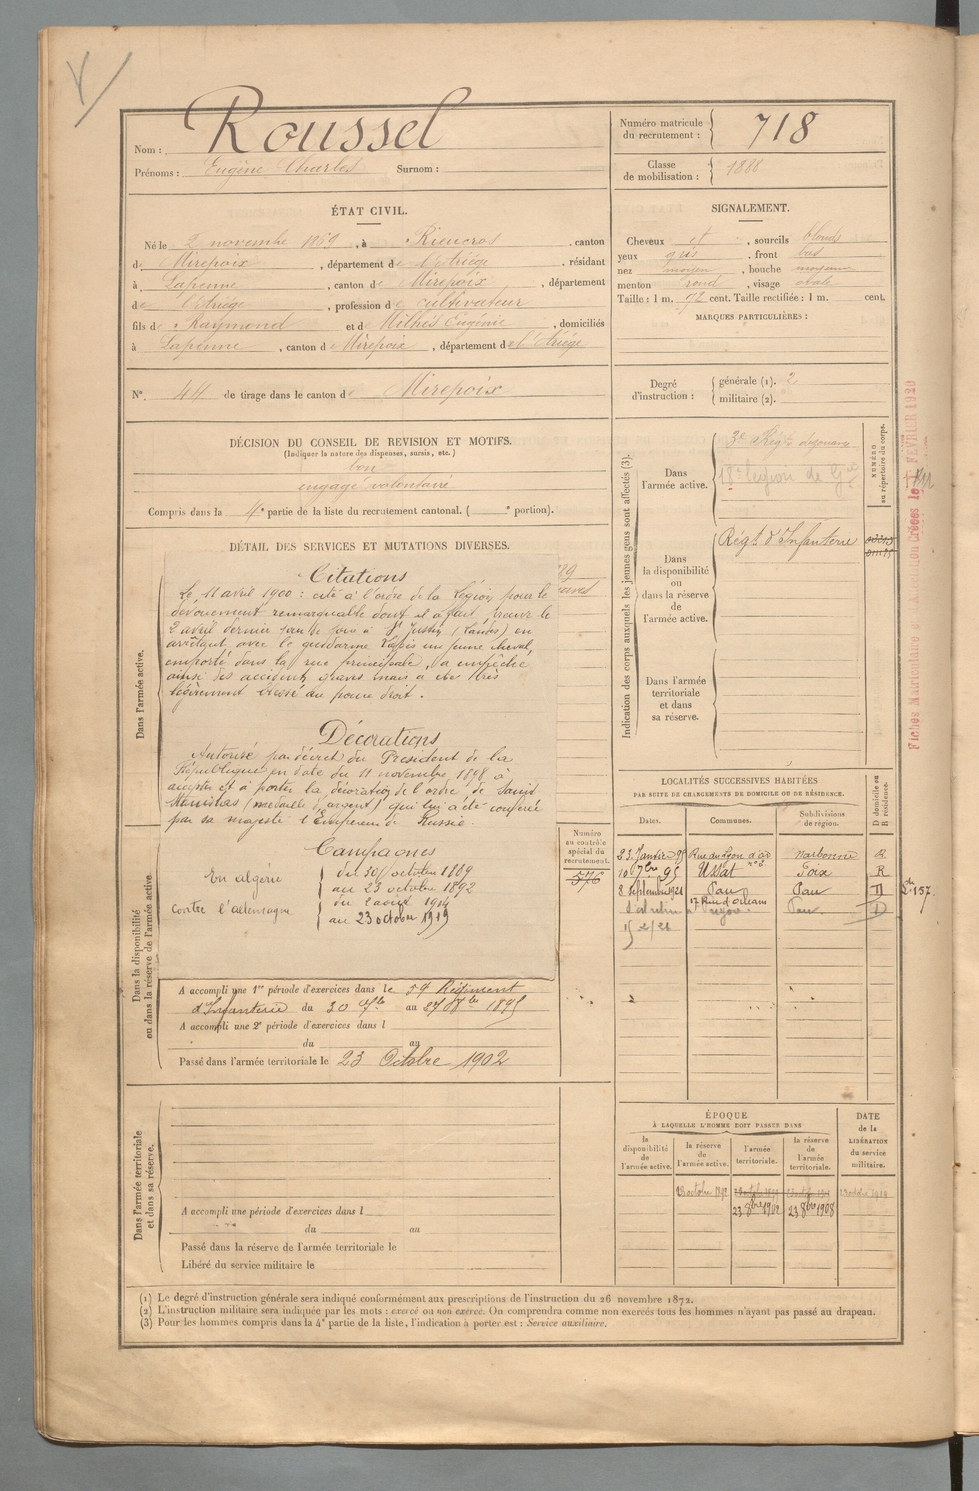 Nom : Roussel
Prénoms : Eugène Charles Surnom :
Numéro matricule du recrutement : 718
Classe de mobilisation : 1888
ÉTAT CIVIL.
Né le 2 novembre 1869, à Rieucros, canton
de Mirepoix, département de l'Ariège, résidant
à Lapenne, canton de Mirepoix, département
de l'Ariège, profession de cultivateur
fils de Raymond et de Milhès Eugénie, domiciliés
à Lapenne, canton de Mirepoix, département de l'Ariège
N° 44 de tirage dans le canton de Mirepoix
SIGNALEMENT.
Cheveux et, sourcils blonds
yeux gris, front bas
nez moyen, bouche moyenne
menton rond, visage ovale
Taille : 1 m. 72 cent. Taille rectifiée : 1 m. cent.
MARQUES PARTICULIÈRES :
Degré d'instruction : générale (1). 2
militaire (2).
DÉCISION DU CONSEIL DE REVISION ET MOTIFS.
(Indiquer la nature des dispenses, sursis, etc.)
bon
engagé volontaire
Compris dans la 4e partie de la liste du recrutement cantonal. ( e portion).
DÉTAIL DES SERVICES ET MUTATIONS DIVERSES.
Dans l'armée active.
Citations
Le 11 avril 1900 : cité à l'ordre de la Légion pour le
dévouement remarquable dont il a fait preuve le
2 avril dernier à St Justin (Landes) en
arrêtant avec le gendarme un jeune cheval,
emporté dans la rue principale, a empêché
ainsi des accidents graves mais a été très
légèrement blessé au pouce droit.
Décorations
Autorisé par décret du Président de la
République en date du 11 novembre 1898 à
accepter et à porter la décoration de l'ordre de Saint
Stanislas (médaille d'argent) qui lui a été conférée
par sa majesté l'Empereur de Russie.
Campagnes
En algérie du 30 octobre 1889
au 23 octobre 1892
contre l'allemagne du 2 août 1914
au 23 octobre 1919
Dans la disponibilité ou dans la réserve de l'armée active
A accompli une 1re période d'exercices dans le 59 Régiment
d'Infanterie du 30 7bre au 27 8bre 1895
A accompli une 2e période d'exercices dans l
du au
Passé dans l'armée territoriale le 23 Octobre 1902
Numéro au contrôle spécial du recrutement.
576
Dans l'armée territoriale et dans sa réserve.
A accompli une période d'exercices dans l
du au
Passé dans la réserve de l'armée territoriale le
Libéré du service militaire le
Indication des corps auxquels les jeunes gens sont affectés (3).
NUMÉRO au répertoire du corps.
Dans l'armée active.
3e Régt de zouaves
18e légion de Gie
Dans la disponibilité ou dans la réserve de l'armée active.
Régt d'Infanterie
Dans l'armée territoriale et dans sa réserve.
LOCALITÉS SUCCESSIVES HABITÉES
PAR SUITE DE CHANGEMENTS DE DOMICILE OU DE RÉSIDENCE.
Dates. Communes. Subdivisions de région. D domicile ou R résidence.
23 Janvier 95 Rue du Lyon d'or n° 6 Narbonne R.
10 7bre 95 Ussat Foix R
8 Septembre 1921 Pau Pau D
17 Rue d'Orléans Pau D
157.
ÉPOQUE
À LAQUELLE L'HOMME DOIT PASSER DANS
la disponibilité de l'armée active.
la réserve de l'armée active.
l'armée territoriale.
la réserve de l'armée territoriale.
DATE de la LIBÉRATION du service militaire.
23 8bre 1902
23 8bre 1908
(1) Le degré d'instruction générale sera indiqué conformément aux prescriptions de l'instruction du 26 novembre 1872.
(2) L'instruction militaire sera indiquée par les mots : exercé ou non exercé. On comprendra comme non exercés tous les hommes n'ayant pas passé au drapeau.
(3) Pour les hommes compris dans la 4e partie de la liste, l'indication à porter est : Service auxiliaire.